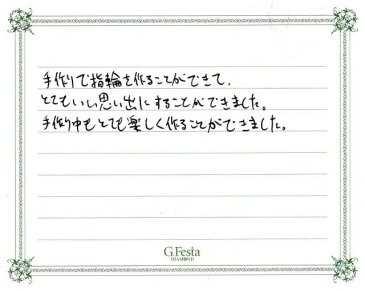 手作りで指輪を作ることができて、
とてもいい思い出にすることができました。
手作り中もとても楽しく作ることができました。
G.Festa
DIAMOND